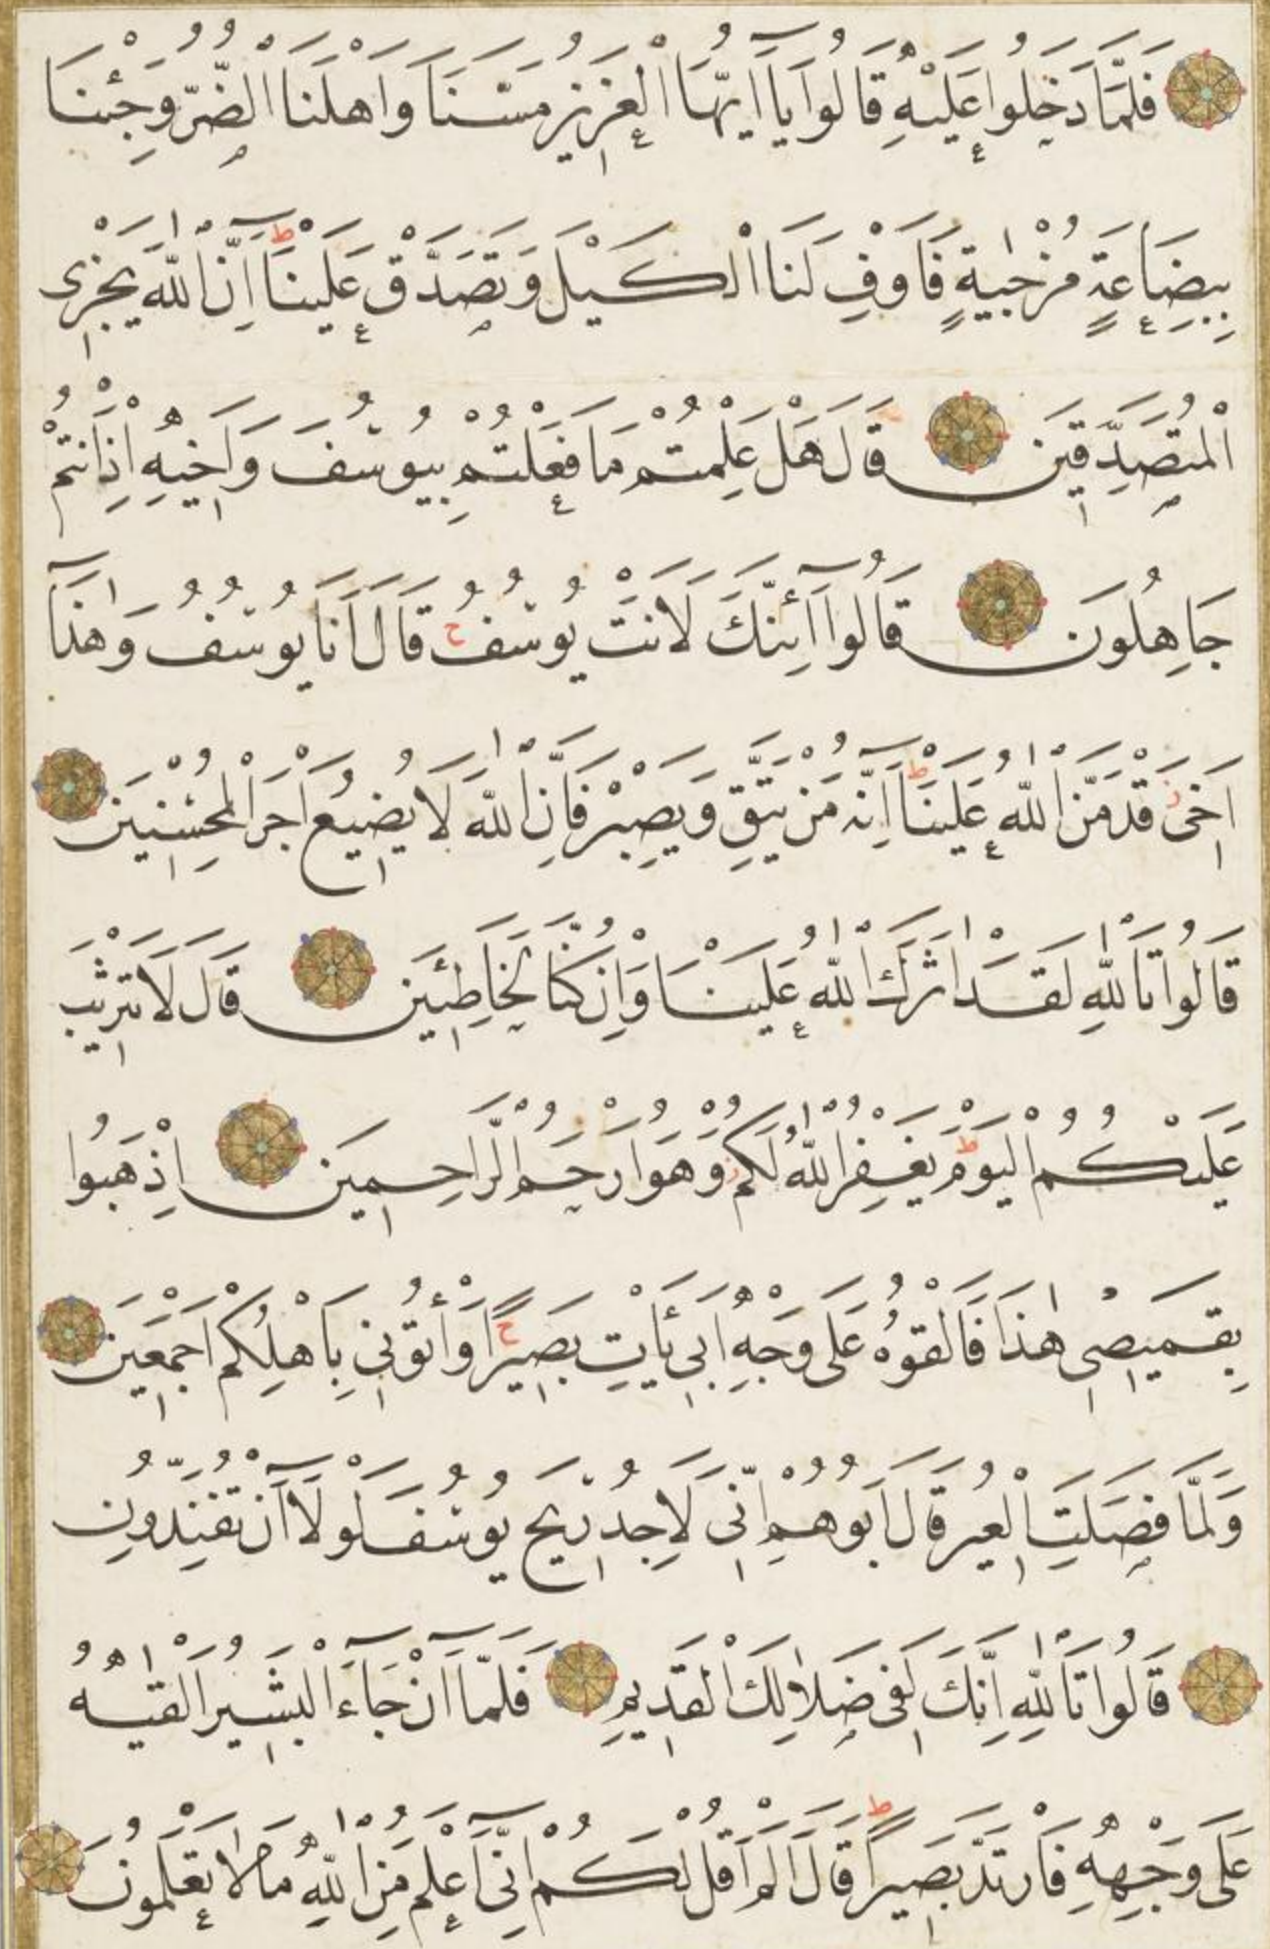 فَلَمَّا دَخَلُوا عَلَيْهِ قَالُوا يَآ اَيُّهَا الْعَزِيزُ مَسَّنَا وَاَهْلَنَا الضُّرُّ وَجِئْنَا
بِبِضَاعَةٍ مُزْجٰيةٍ فَاَوْفِ لَنَا الْكَيْلَ وَتَصَدَّقْ عَلَيْنَآ ط اِنَّ اللّٰهَ يَجْزِى
الْمُتَصَدِّقِينَ قَالَ هَلْ عَلِمْتُمْ مَا فَعَلْتُمْ بِيُوسُفَ وَاَخِيهِ اِذْ اَنْتُمْ
جَاهِلُونَ قَالُوآ اَئِنَّكَ لَاَنْتَ يُوسُفُ ح قَالَ اَنَا يُوسُفُ وَهٰذَآ
اَخِى ز قَدْ مَنَّ اللّٰهُ عَلَيْنَآ ط اِنَّهُ مَنْ يَتَّقِ وَيَصْبِرْ فَاِنَّ اللّٰهَ لَا يُضِيعُ اَجْرَ الْمُحْسِنِينَ
قَالُوا تَاللّٰهِ لَقَدْ اٰثَرَكَ اللّٰهُ عَلَيْنَا وَاِنْ كُنَّا لَخَاطِئِينَ قَالَ لَا تَثْرِيبَ
عَلَيْكُمُ الْيَوْمَ ط يَغْفِرُ اللّٰهُ لَكُمْ ز وَهُوَ اَرْحَمُ الرَّاحِمِينَ اِذْهَبُوا
بِقَمِيصِى هٰذَا فَاَلْقُوهُ عَلٰى وَجْهِ اَبِى يَأْتِ بَصِيرًا ح وَأْتُونِى بِاَهْلِكُمْ اَجْمَعِينَ
وَلَمَّا فَصَلَتِ الْعِيرُ قَالَ اَبُوهُمْ اِنِّى لَاَجِدُ رِيحَ يُوسُفَ لَوْلَآ اَنْ تُفَنِّدُونِ
قَالُوا تَاللّٰهِ اِنَّكَ لَفِى ضَلَالِكَ الْقَدِيمِ فَلَمَّآ اَنْ جَآءَ الْبَشِيرُ اَلْقٰيهُ
عَلٰى وَجْهِهِ فَارْتَدَّ بَصِيرًا ط قَالَ اَلَمْ اَقُلْ لَكُمْ اِنِّىٓ اَعْلَمُ مِنَ اللّٰهِ مَا لَا تَعْلَمُونَ